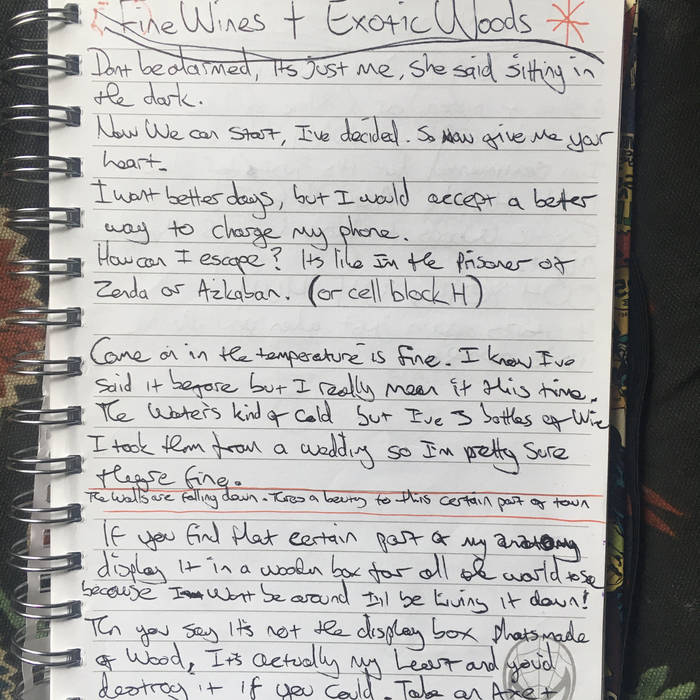 Fine Wines + Exotic Woods
Dont be alarmed, Its just me, She said sitting in
the dark.
Now We can start, I've decided. So now give me your
heart.
I want better days, but I would accept a better
way to charge my phone.
How can I escape? Its like Im the Prisoner of
Zenda or Azkaban. (or cell block H)
Come on in the temperature is fine. I know I've
said it before but I really mean it this time.
The Waters kind of cold but I've 3 bottles of Wine
I took them from a wedding so I'm pretty sure
fine.
The Walls are falling down. Theres a beauty to this certain part of town
If you find that certain part of my anatomy
display it in a wooden box for all the world to see
because I wont be around I'll be living it down!
Then you say It's not the display box thats made
of Wood, It's actually my heart and you'd
destroy it if you could. Take an